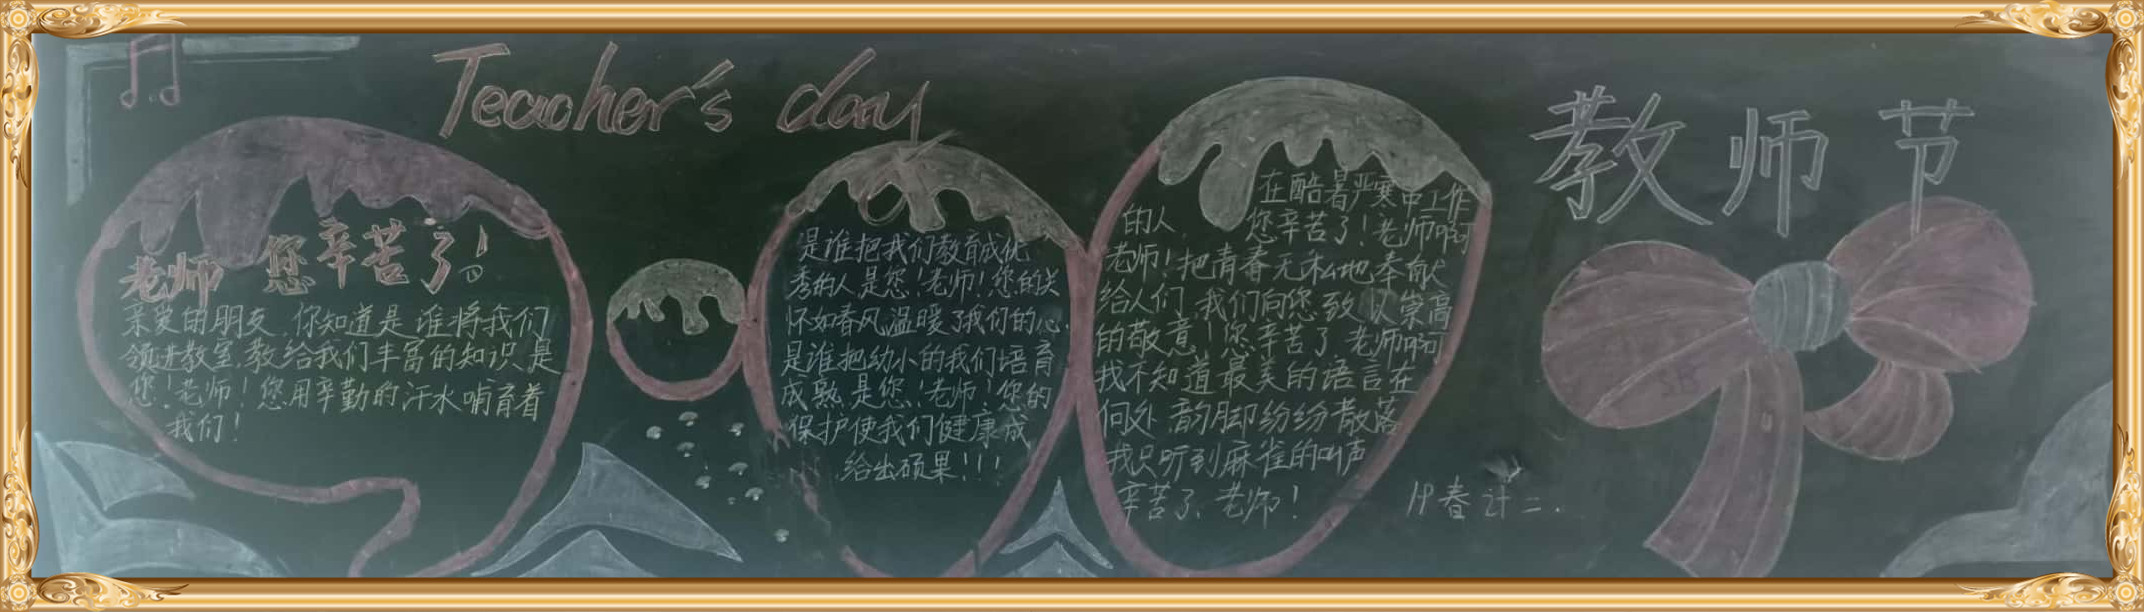 Teacher's day
教师节
老师 您辛苦了!
亲爱的朋友 你知道是谁将我们
领进教室,教给我们丰富的知识是
您!老师!您用辛勤的汗水哺育着
我们!
是谁把我们教育成优
秀的人是您!老师!您的关
怀如春风温暖了我们的心.
是谁把幼小的我们培育
成熟是您!老师!您的
保护使我们健康成
给出硕果!!!
在酷暑严寒中工作
的人 您辛苦了!老师啊
老师!把青春无私地奉献
给人们 我们向您致以崇高
的敬意!您辛苦了 老师啊
我不知道最美的语言在
何处 韵脚纷纷散落
我只听到麻雀的叫声
辛苦了、老师!
19春计二.